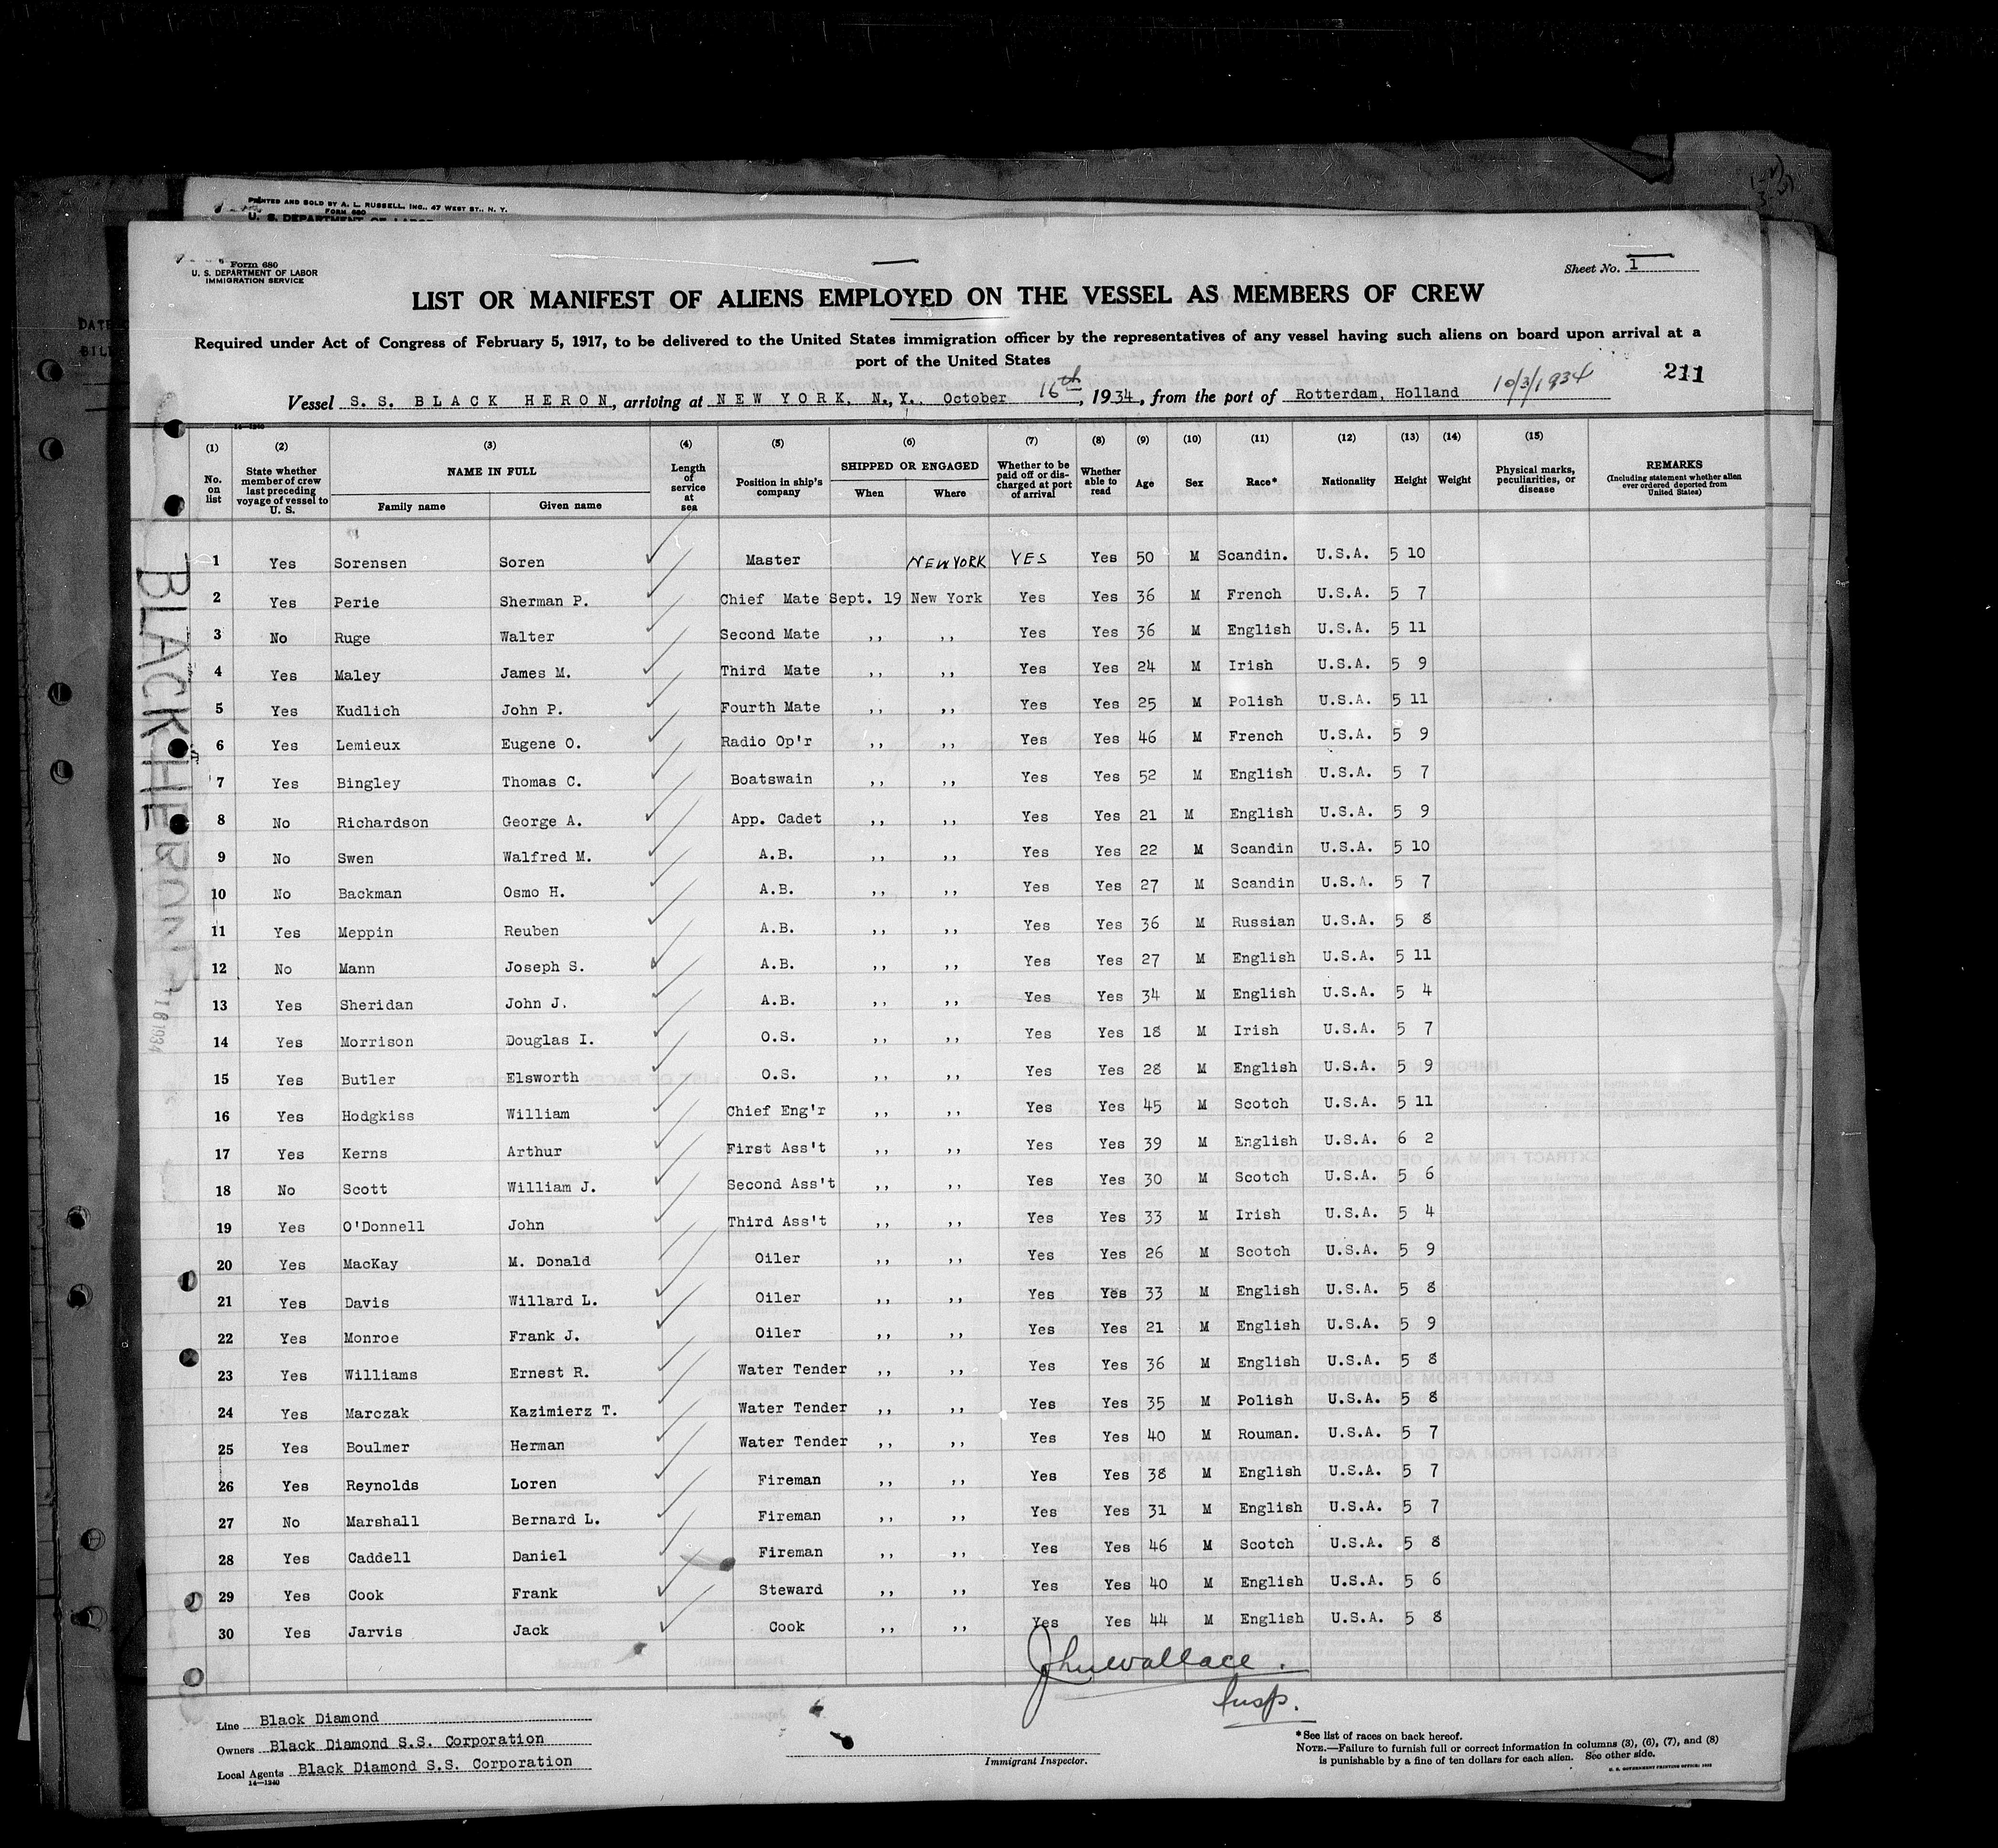 PRINTED AND SOLD BY A. L. RUSSELL, INC., 47 WEST ST., N. Y.
FORM 680
U. S. DEPARTMENT OF LABOR
Form 680
U. S. DEPARTMENT OF LABOR
IMMIGRATION SERVICE
Sheet No. 1
LIST OR MANIFEST OF ALIENS EMPLOYED ON THE VESSEL AS MEMBERS OF CREW
Required under Act of Congress of February 5, 1917, to be delivered to the United States immigration officer by the representatives of any vessel having such aliens on board upon arrival at a
port of the United States
10/3/1934 211
Vessel S. S. BLACK HERON, arriving at NEW YORK, N.Y. October 16th, 1934, from the port of Rotterdam, Holland
14—1240
(1) (2) (3) (4) (5) (6) (7) (8) (9) (10) (11) (12) (13) (14) (15)
No. on list State whether member of crew last preceding voyage of vessel to U. S. NAME IN FULL Family name Given name Length of service at sea Position in ship's company SHIPPED OR ENGAGED When Where Whether to be paid off or discharged at port of arrival Whether able to read Age Sex Race* Nationality Height Weight Physical marks, peculiarities, or disease REMARKS (Including statement whether alien ever ordered deported from United States)
1 Yes Sorensen Soren Master NEW YORK YES Yes 50 M Scandin. U.S.A. 5 10
2 Yes Perie Sherman P. Chief Mate Sept. 19 New York Yes Yes 36 M French U.S.A. 5 7
3 No Ruge Walter Second Mate ,, ,, Yes Yes 36 M English U.S.A. 5 11
4 Yes Maley James M. Third Mate ,, ,, Yes Yes 24 M Irish U.S.A. 5 9
5 Yes Kudlich John P. Fourth Mate ,, ,, Yes Yes 25 M Polish U.S.A. 5 11
6 Yes Lemieux Eugene O. Radio Op'r ,, ,, Yes Yes 46 M French U.S.A. 5 9
7 Yes Bingley Thomas C. Boatswain ,, ,, Yes Yes 52 M English U.S.A. 5 7
8 No Richardson George A. App. Cadet ,, ,, Yes Yes 21 M English U.S.A. 5 9
9 No Swen Walfred M. A.B. ,, ,, Yes Yes 22 M Scandin U.S.A. 5 10
10 No Backman Osmo H. A.B. ,, ,, Yes Yes 27 M Scandin U.S.A. 5 7
11 Yes Meppin Reuben A.B. ,, ,, Yes Yes 36 M Russian U.S.A. 5 8
12 No Mann Joseph S. A.B. ,, ,, Yes Yes 27 M English U.S.A. 5 11
13 Yes Sheridan John J. A.B. ,, ,, Yes Yes 34 M English U.S.A. 5 4
14 Yes Morrison Douglas I. O.S. ,, ,, Yes Yes 18 M Irish U.S.A. 5 7
15 Yes Butler Elsworth O.S. ,, ,, Yes Yes 28 M English U.S.A. 5 9
16 Yes Hodgkiss William Chief Eng'r ,, ,, Yes Yes 45 M Scotch U.S.A. 5 11
17 Yes Kerns Arthur First Ass't ,, ,, Yes Yes 39 M English U.S.A. 6 2
18 No Scott William J. Second Ass't ,, ,, Yes Yes 30 M Scotch U.S.A. 5 6
19 Yes O'Donnell John Third Ass't ,, ,, Yes Yes 33 M Irish U.S.A. 5 4
20 Yes MacKay M. Donald Oiler ,, ,, Yes Yes 26 M Scotch U.S.A. 5 9
21 Yes Davis Willard L. Oiler ,, ,, Yes Yes 33 M English U.S.A. 5 8
22 Yes Monroe Frank J. Oiler ,, ,, Yes Yes 21 M English U.S.A. 5 9
23 Yes Williams Ernest R. Water Tender ,, ,, Yes Yes 36 M English U.S.A. 5 8
24 Yes Marczak Kazimierz T. Water Tender ,, ,, Yes Yes 35 M Polish U.S.A. 5 8
25 Yes Boulmer Herman Water Tender ,, ,, Yes Yes 40 M Rouman. U.S.A. 5 7
26 Yes Reynolds Loren Fireman ,, ,, Yes Yes 38 M English U.S.A. 5 7
27 No Marshall Bernard L. Fireman ,, ,, Yes Yes 31 M English U.S.A. 5 7
28 Yes Caddell Daniel Fireman ,, ,, Yes Yes 46 M Scotch U.S.A. 5 8
29 Yes Cook Frank Steward ,, ,, Yes Yes 40 M English U.S.A. 5 6
30 Yes Jarvis Jack Cook ,, ,, Yes Yes 44 M English U.S.A. 5 8
BLACK HERON
John Wallace.
Insp.
Line Black Diamond
Owners Black Diamond S.S. Corporation
Local Agents Black Diamond S.S. Corporation
14—1240
Immigrant Inspector.
*See list of races on back hereof.
NOTE.—Failure to furnish full or correct information in columns (3), (6), (7), and (8)
is punishable by a fine of ten dollars for each alien. See other side.